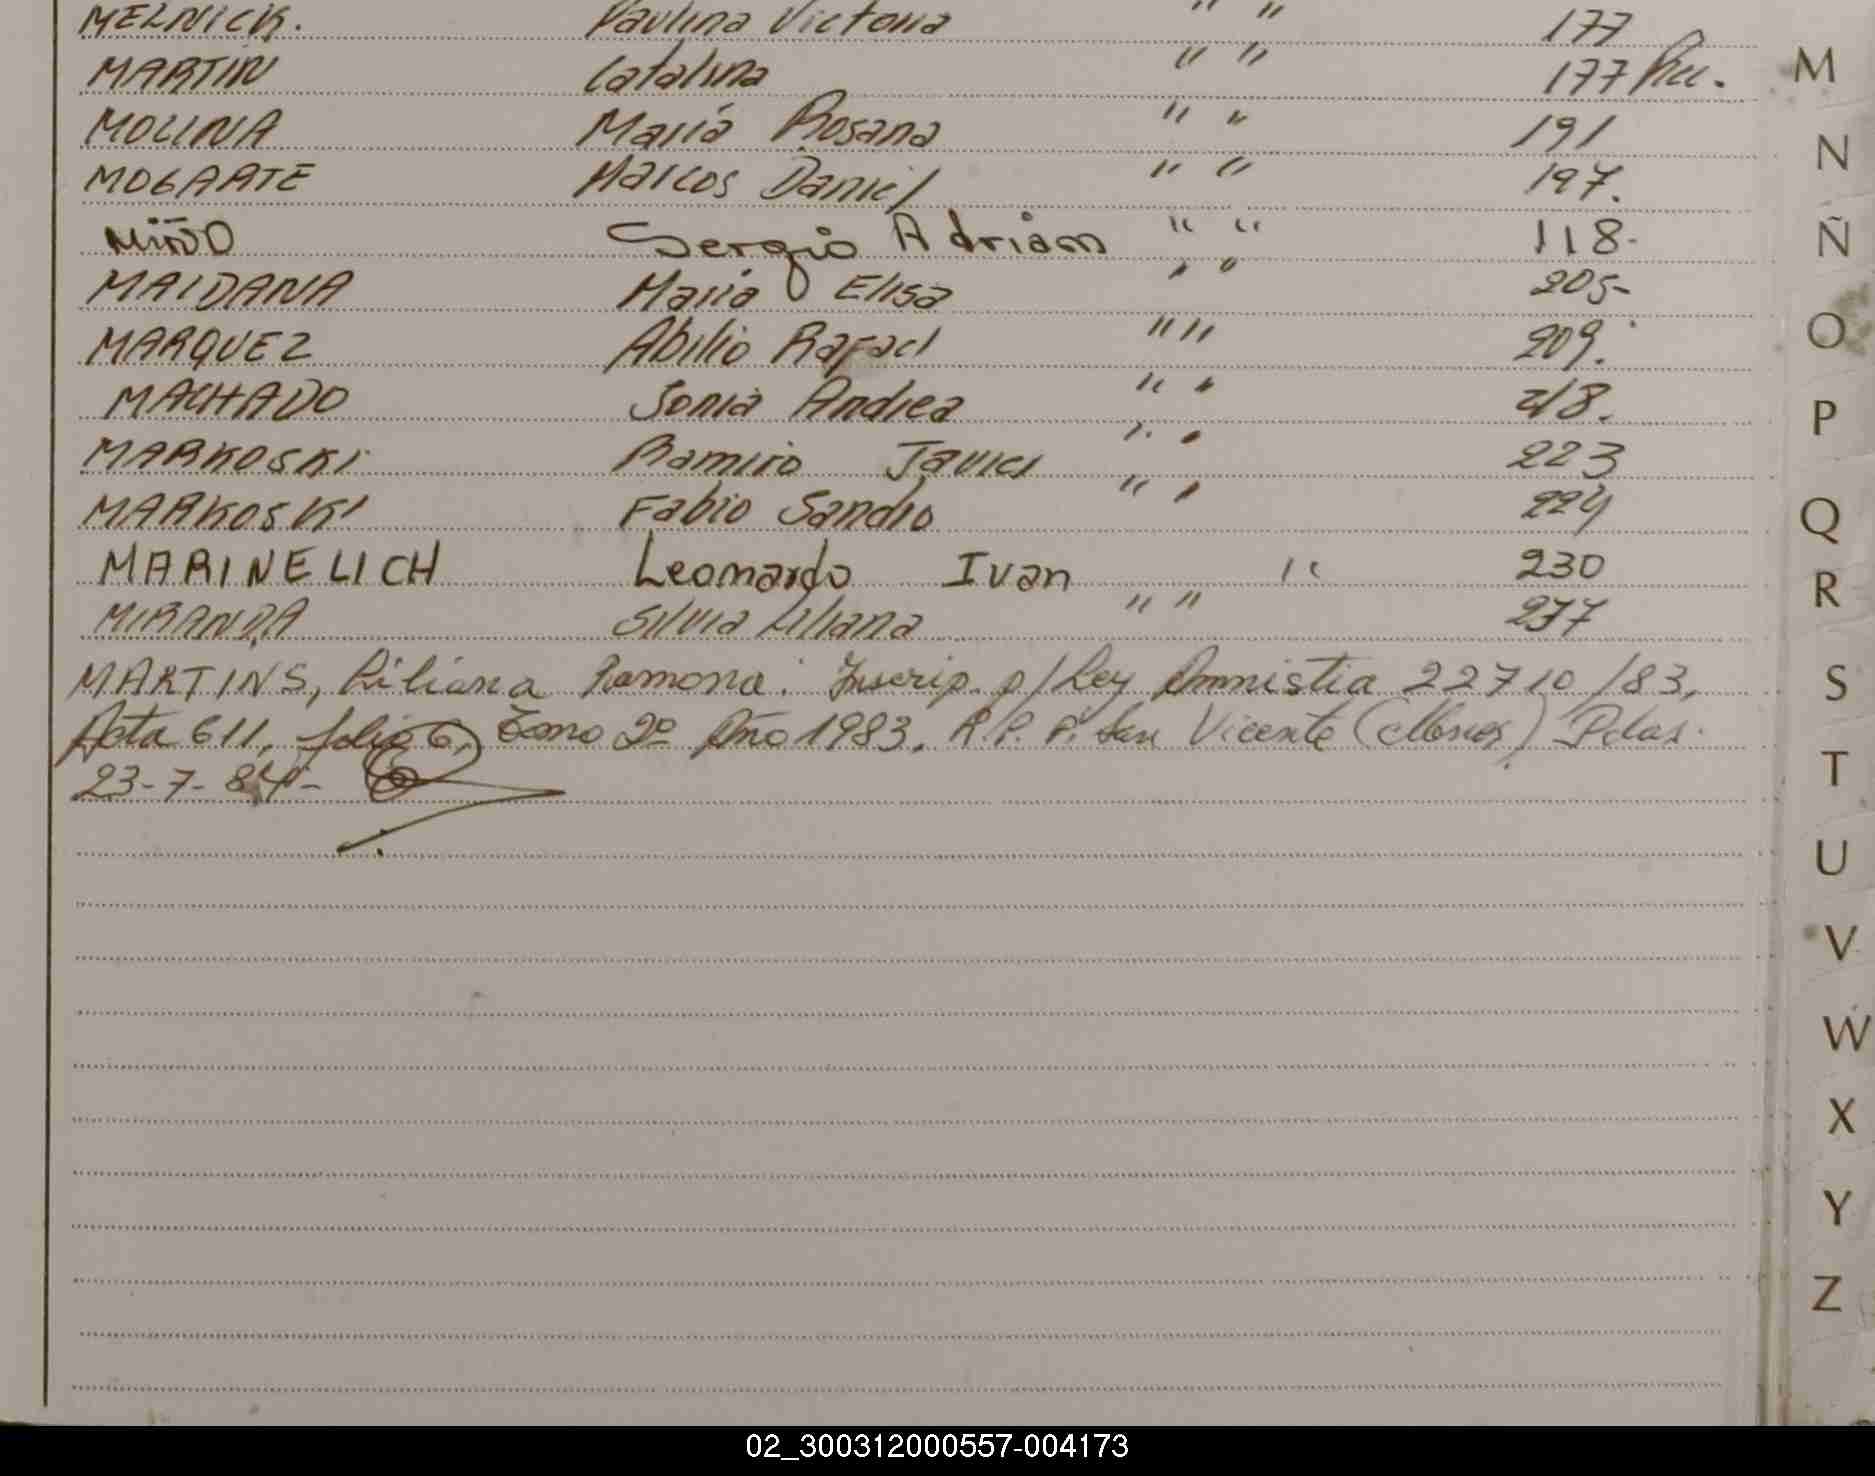 MELNICK. Paulina Victoria " " 177
MARTIN Catalina " " 177
MOLINA María Rosana " " 191
MOGAATE Marcos Daniel " " 197.
MIÑO Sergio Adrián " " 118-
MAIDANA María Elisa " " 205-
MARQUEZ Abilio Rafael " " 209.
MACHADO Sonia Andrea " " 218.
MARKOSKI Ramiro Javier " " 223
MARKOSKI Fabio Sandro " " 224
MARINELICH Leonardo Ivan " 230
MIRANDA Silvia Liliana " " 237
MARTINS, Liliana Ramona. Inscrip. p/ Ley Amnistia 22710/83,
Acta 611, folio 6, Tomo 2º Año 1983. R.P. San Vicente (Mnes) Pdas.
23-7-84-
M
N
Ñ
O
P
Q
R
S
T
U
V
W
X
Y
Z
02_300312000557-004173